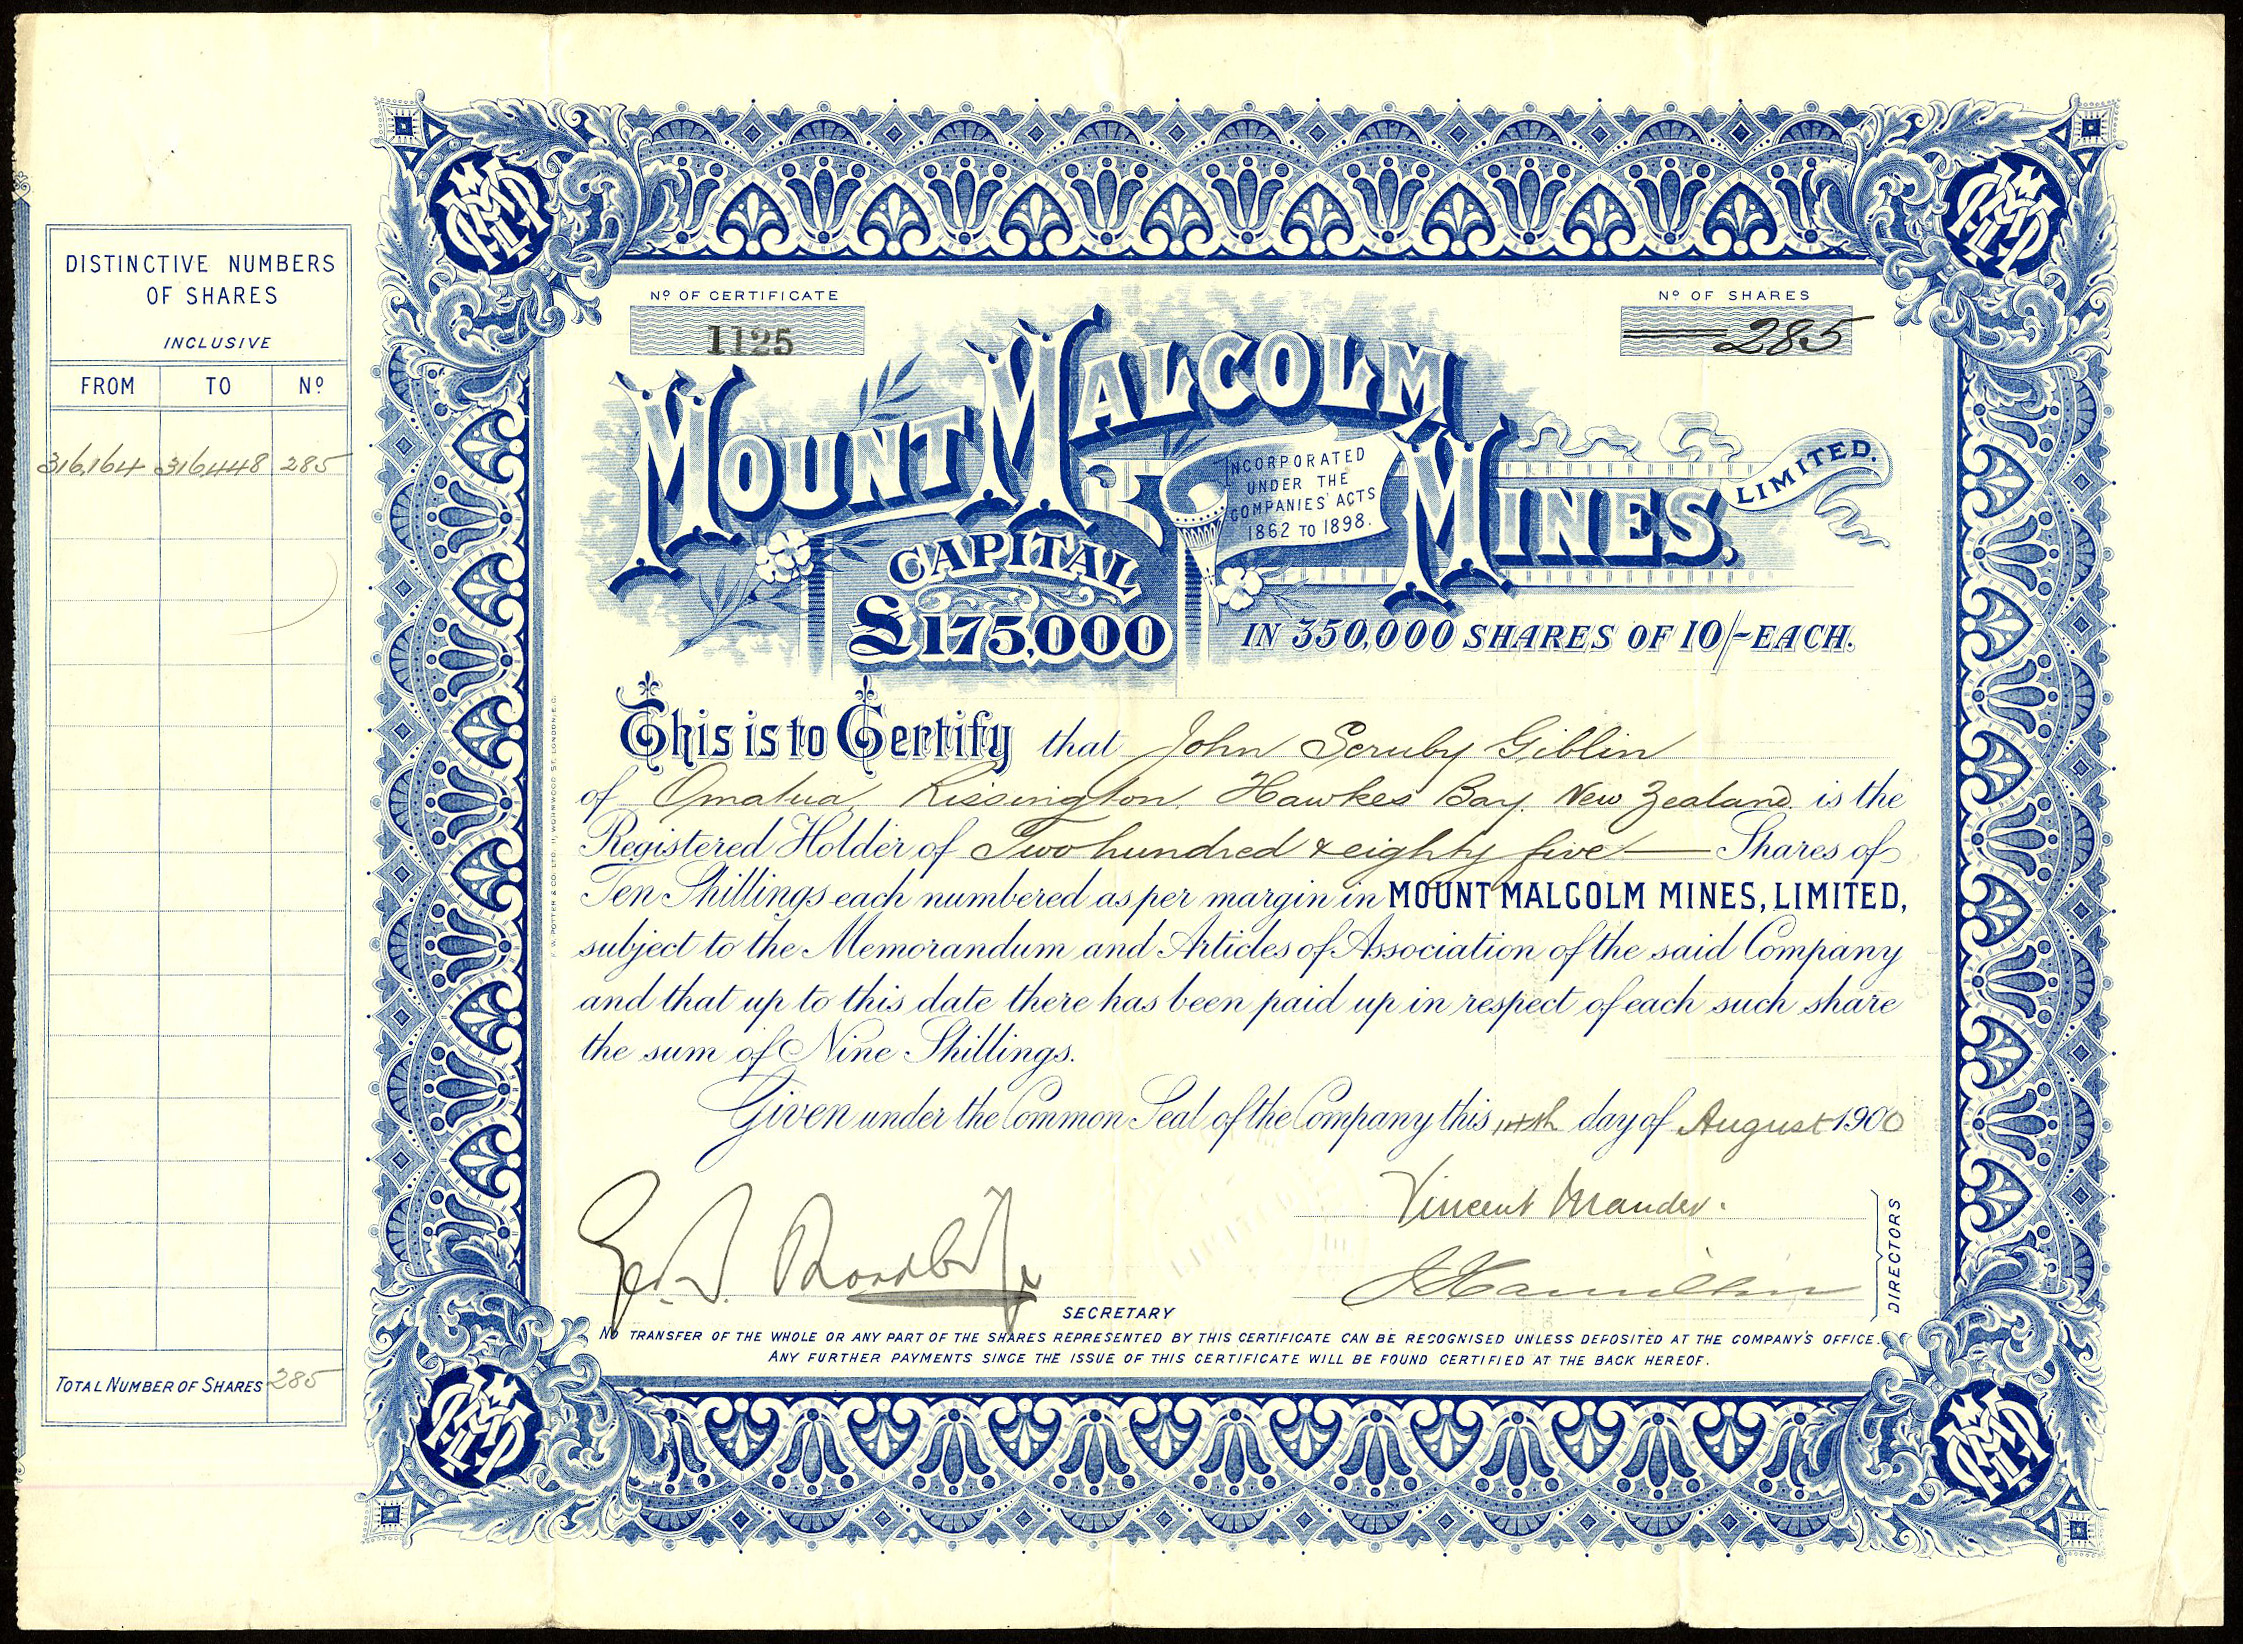 DISTINCTIVE NUMBERS
OF SHARES
INCLUSIVE
FROM TO Nº
316,164 316,448 285
TOTAL NUMBER OF SHARES 285
Nº OF CERTIFICATE
1125
Nº OF SHARES
285
MOUNT MALCOLM MINES, LIMITED.
INCORPORATED
UNDER THE
COMPANIES' ACTS
1862 TO 1898.
CAPITAL
£175,000
IN 350,000 SHARES OF 10/- EACH.
This is to Certify that John Scruby Giblin
of Omatua, Rissington, Hawkes Bay, New Zealand is the
Registered Holder of Two hundred & eighty five Shares of
Ten Shillings each numbered as per margin in MOUNT MALCOLM MINES, LIMITED,
subject to the Memorandum and Articles of Association of the said Company
and that up to this date there has been paid up in respect of each such share
the sum of Nine Shillings.
Given under the Common Seal of the Company this 14th day of August 1900
Vincent Mander.
DIRECTORS
SECRETARY
NO TRANSFER OF THE WHOLE OR ANY PART OF THE SHARES REPRESENTED BY THIS CERTIFICATE CAN BE RECOGNISED UNLESS DEPOSITED AT THE COMPANY'S OFFICE.
ANY FURTHER PAYMENTS SINCE THE ISSUE OF THIS CERTIFICATE WILL BE FOUND CERTIFIED AT THE BACK HEREOF.
F. W. POTTER & CO. LTD. 11, WORMWOOD ST. LONDON, E.C.